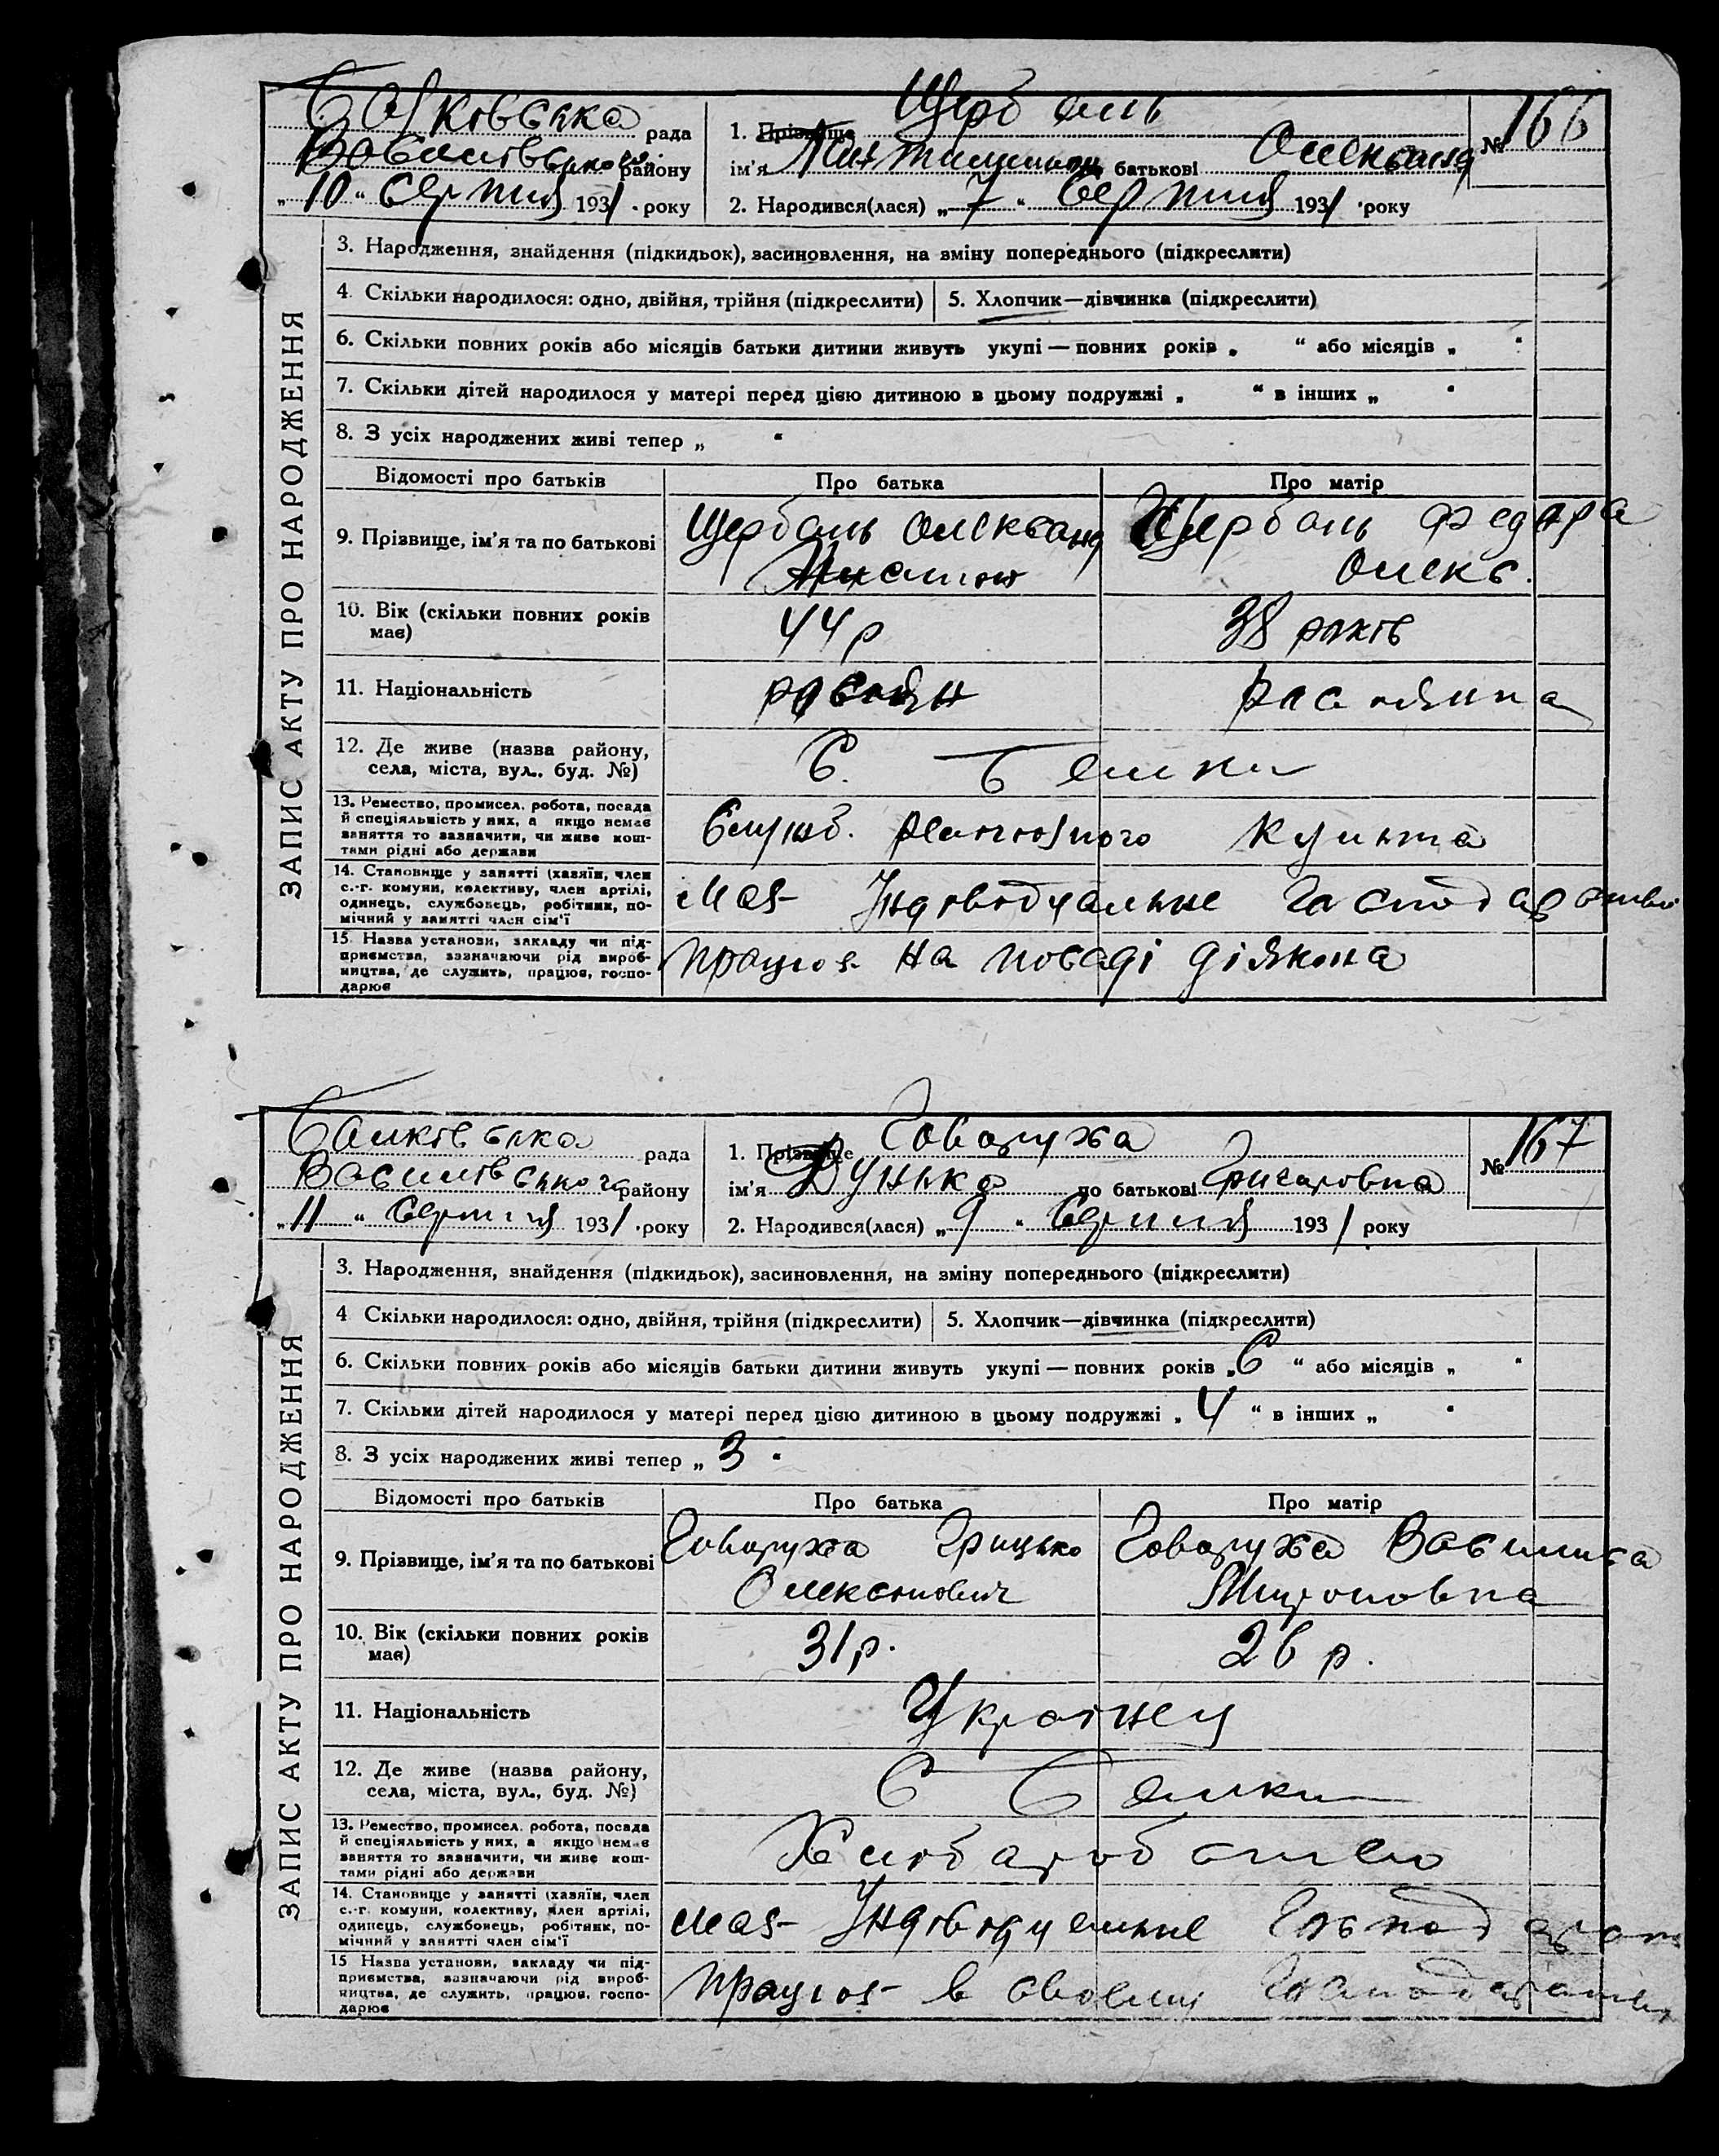 Балковська рада
Василівського району
„10“ Серпня 1931 року
1. Прізвище Щербань
ім'я по батькові Олександ
№ 166
2. Народився(лася) „7“ Серпня 1931 року
ЗАПИС АКТУ ПРО НАРОДЖЕННЯ
3. Народження, знайдення (підкидьок), засиновлення, на зміну попереднього (підкреслити)
4. Скільки народилося: одно, двійня, трійня (підкреслити) 5. Хлопчик—дівчинка (підкреслити)
6. Скільки повних років або місяців батьки дитини живуть укупі — повних років „ “ або місяців „ “
7. Скільки дітей народилося у матері перед цією дитиною в цьому подружжі „ “ в інших „ “
8. З усіх народжених живі тепер „ “
Відомості про батьків Про батька Про матір
9. Прізвище, ім'я та по батькові
Щербань Олександ
Щербань Федора
Олекс.
10. Вік (скільки повних років
має)
44 р
38 років
11. Національність
росіян
росіянина
12. Де живе (назва району,
села, міста, вул., буд. №)
С. Балки
13. Ремество, промисел, робота, посада
й спеціяльність у них, а якщо немає
заняття то зазначити, чи живе кош-
тами рідні або держави
Служб. релігіозного культа
14. Становище у занятті (хазяїн, член
с.-г. комуни, колективу, член артілі,
одинець, службовець, робітник, по-
мічний у занятті член сім'ї
має Індовідуальне Господарство
15. Назва установи, закладу чи під-
приємства, зазначаючи рід вироб-
ництва, де служить, працює, госпо-
дарює
працює на посаді діякона
Балківська рада
Василівського району
„11“ Серпня 1931 року
1. Прізвище Говоруха
ім'я Дунька по батькові Григоровна
№ 167
2. Народився(лася) „9“ Серпня 1931 року
ЗАПИС АКТУ ПРО НАРОДЖЕННЯ
3. Народження, знайдення (підкидьок), засиновлення, на зміну попереднього (підкреслити)
4 Скільки народилося: одно, двійня, трійня (підкреслити) 5. Хлопчик—дівчинка (підкреслити)
6. Скільки повних років або місяців батьки дитини живуть укупі — повних років „6“ або місяців „ “
7. Скільки дітей народилося у матері перед цією дитиною в цьому подружжі „4“ в інших „ “
8. З усіх народжених живі тепер „3“
Відомості про батьків Про батька Про матір
9. Прізвище, ім'я та по батькові
Говоруха Грицько
Олексійович
Говоруха Василиса
Мироновна
10. Вік (скільки повних років
має)
31 р.
26 р.
11. Національність
Українец
12. Де живе (назва району,
села, міста, вул., буд. №)
С Балки
13. Ремество, промисел, робота, посада
й спеціяльність у них, а якщо немає
заняття то зазначити, чи живе кош-
тами рідні або держави
Хліборобством
14. Становище у занятті (хазяїн, член
с.-г. комуни, колективу, член артілі,
одинець, службовець, робітник, по-
мічний у занятті член сім'ї
має Індовідуальне
15 Назва установи, закладу чи під-
приємства, зазначаючи рід вироб-
ництва, де служить, працює, госпо-
дарює
працює в своєму господарстві